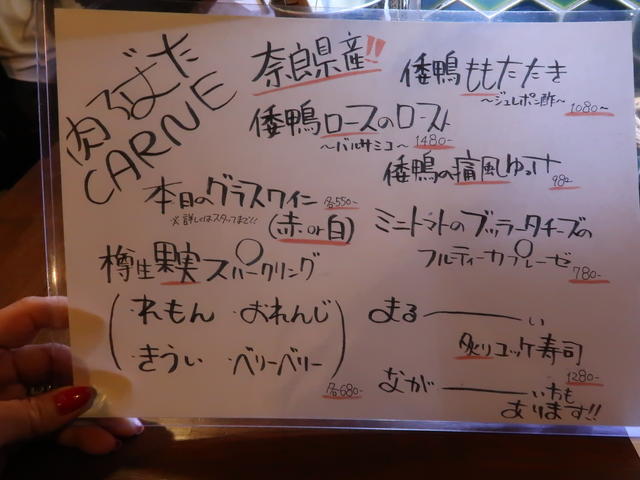 肉ろばた
CARNE
奈良県産!!
倭鴨ももたたき
〜ジュレポン酢〜 1080-
倭鴨ロースのロースト
〜バルサミコ〜 1480-
倭鴨の痛風ゆっけ
982-
本日のグラスワイン 各550-
※詳しくはスタッフまで!!
(赤 or 白)
ミニトマトのブッラータチーズの
フルーティーカプレーゼ
780-
樽生果実スパークリング
・れもん ・おれんじ
・きうい ・ベリーベリー
各680-
まるーーい
炙りユッケ寿司
1280-
ながーーいわも
あります!!